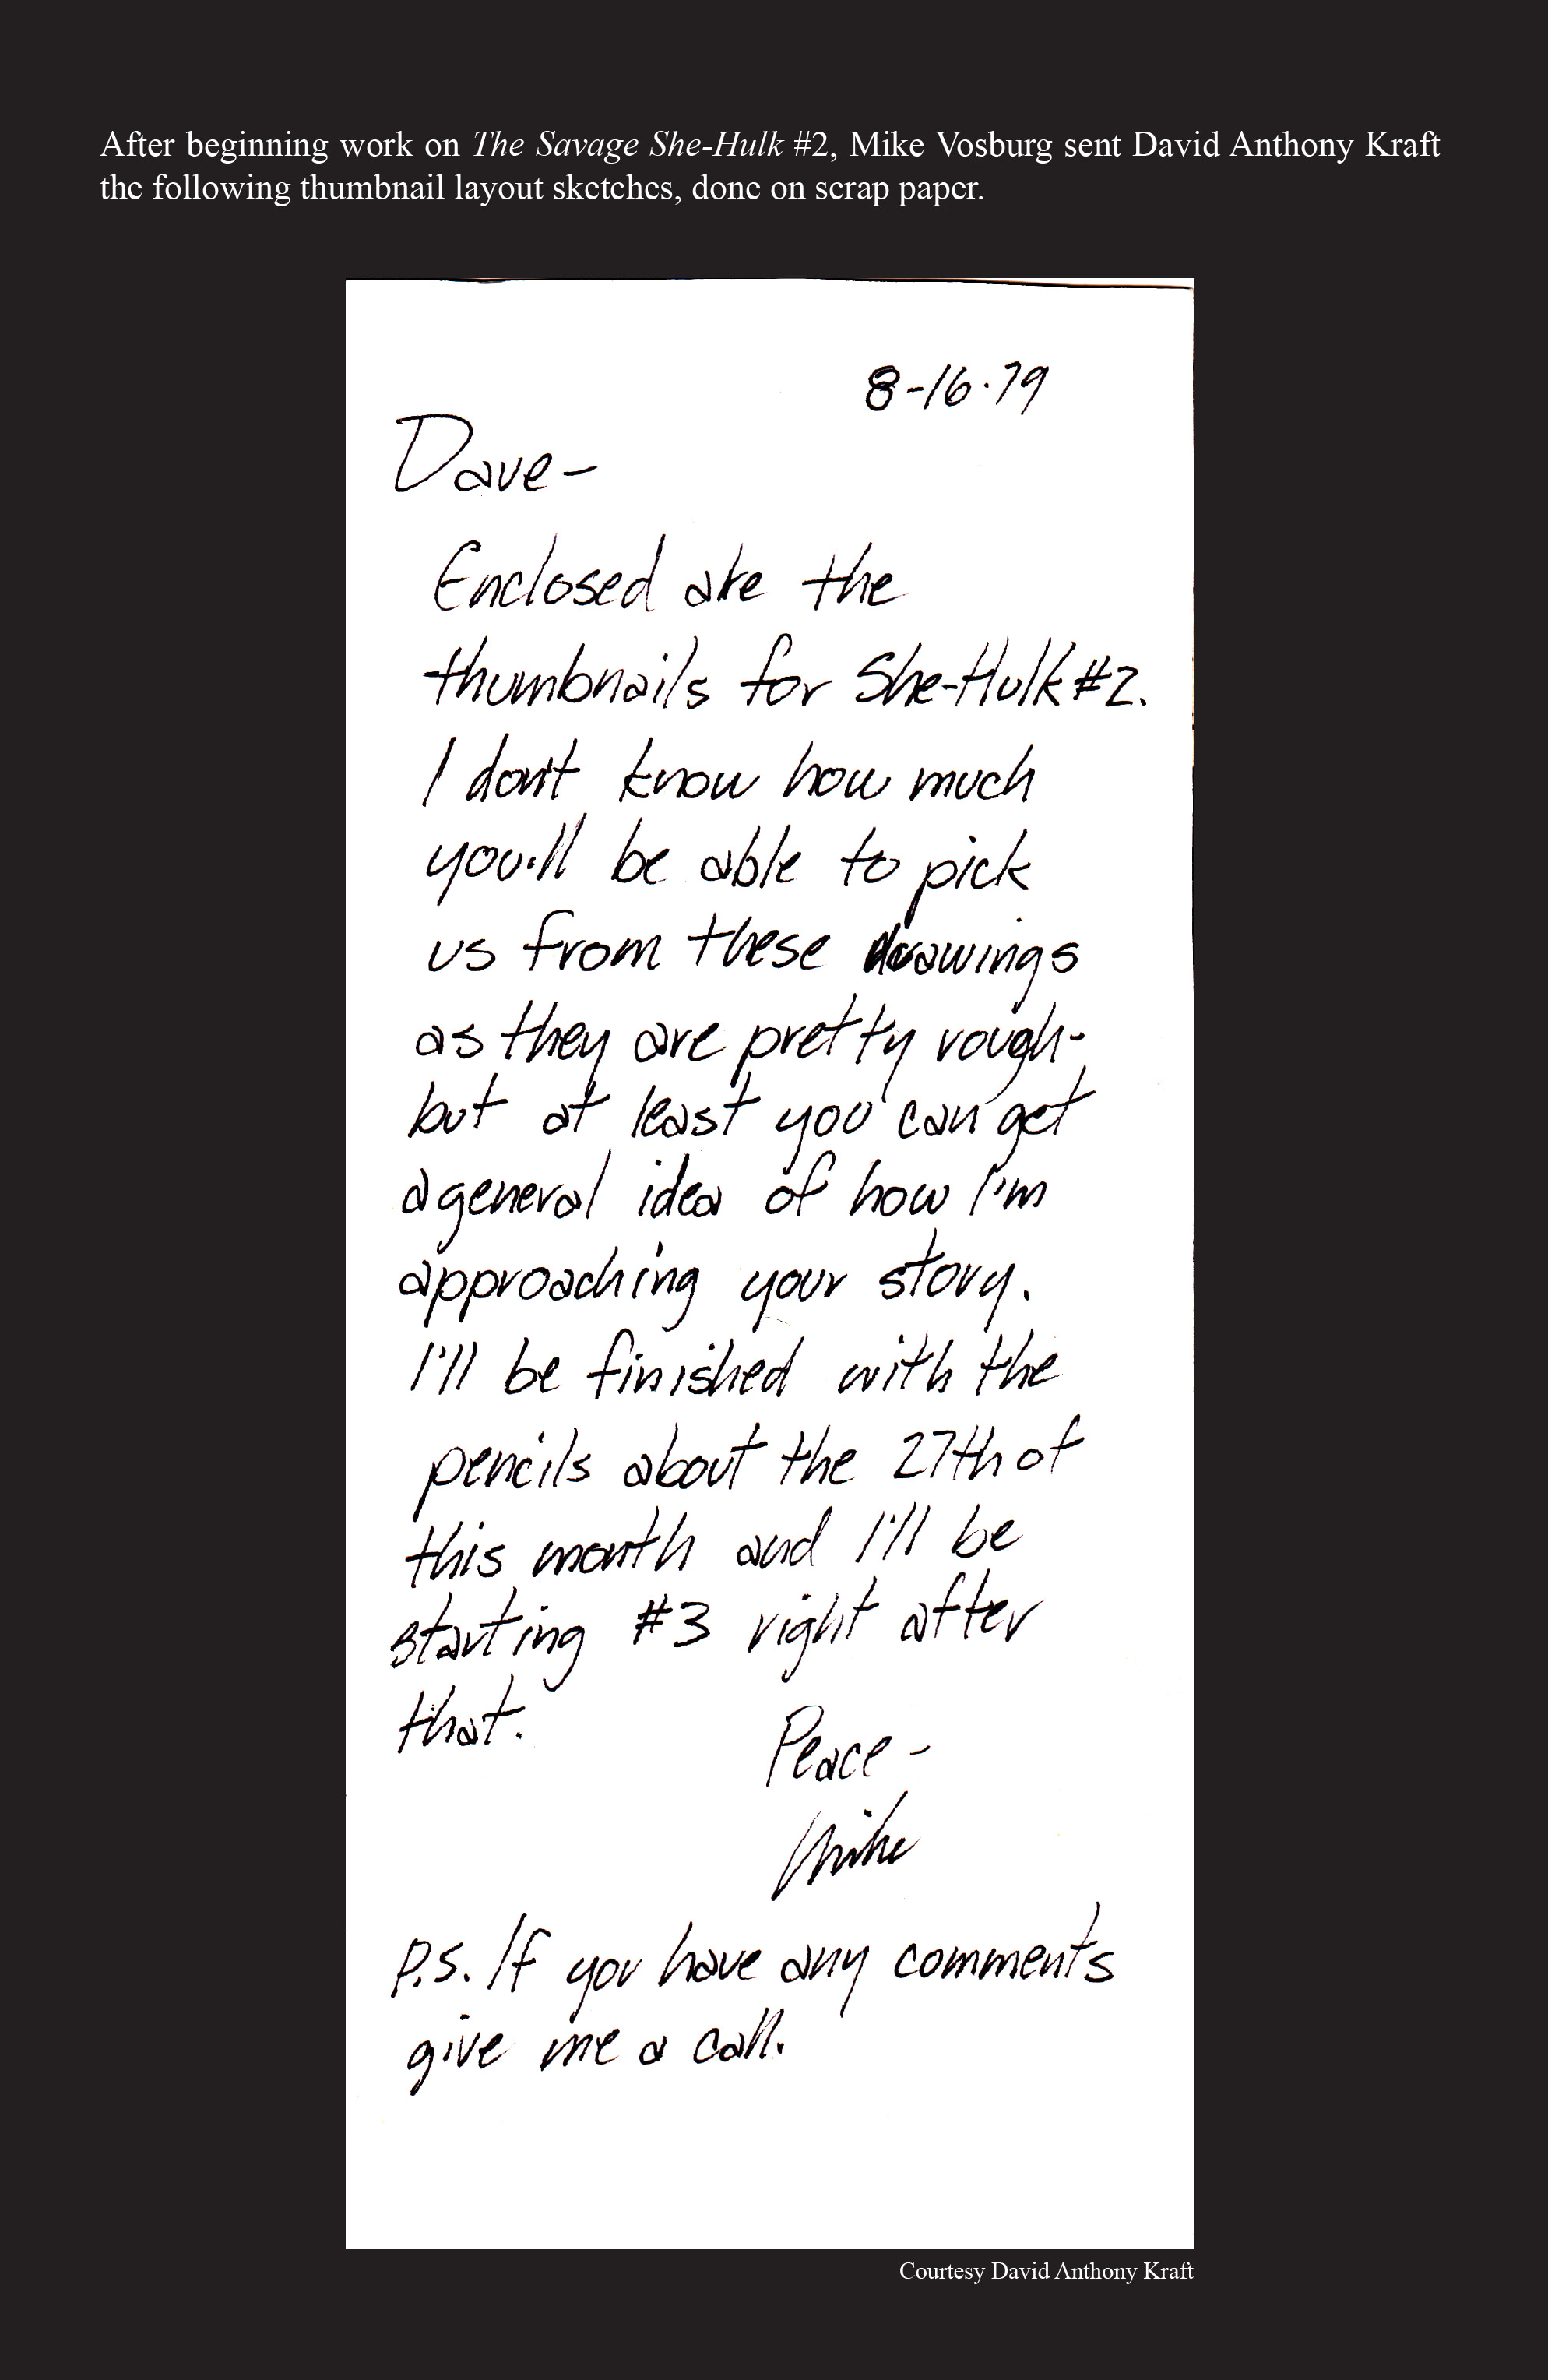 After beginning work on The Savage She-Hulk #2, Mike Vosburg sent David Anthony Kraft
the following thumbnail layout sketches, done on scrap paper.
8-16-79
Dave-
Enclosed are the
thumbnails for She-Hulk #2.
I don't know how much
you'll be able to pick
us from these drawings
as they are pretty rough-
but at least you can get
a general idea of how I'm
approaching your story.
I'll be finished with the
pencils about the 27th of
this month and I'll be
starting #3 right after
that.
Peace-
Mike
P.S. If you have any comments
give me a call.
Courtesy David Anthony Kraft